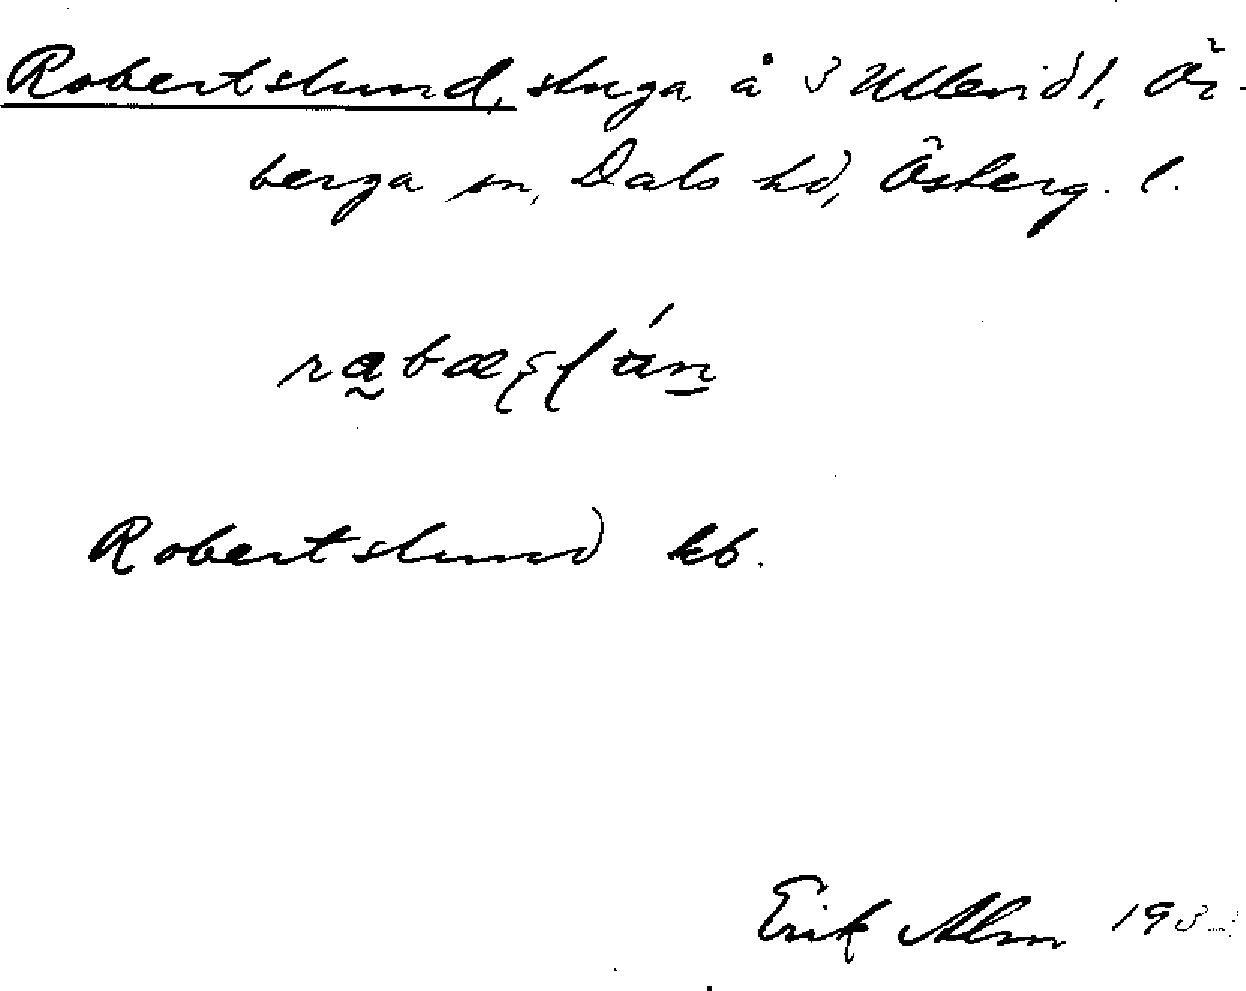 Robertslund, stuga å 3 Ullevid 1, Ör-
berga sn, Dals hd, Österg. l.
Robertslund kb.
Erik Alm